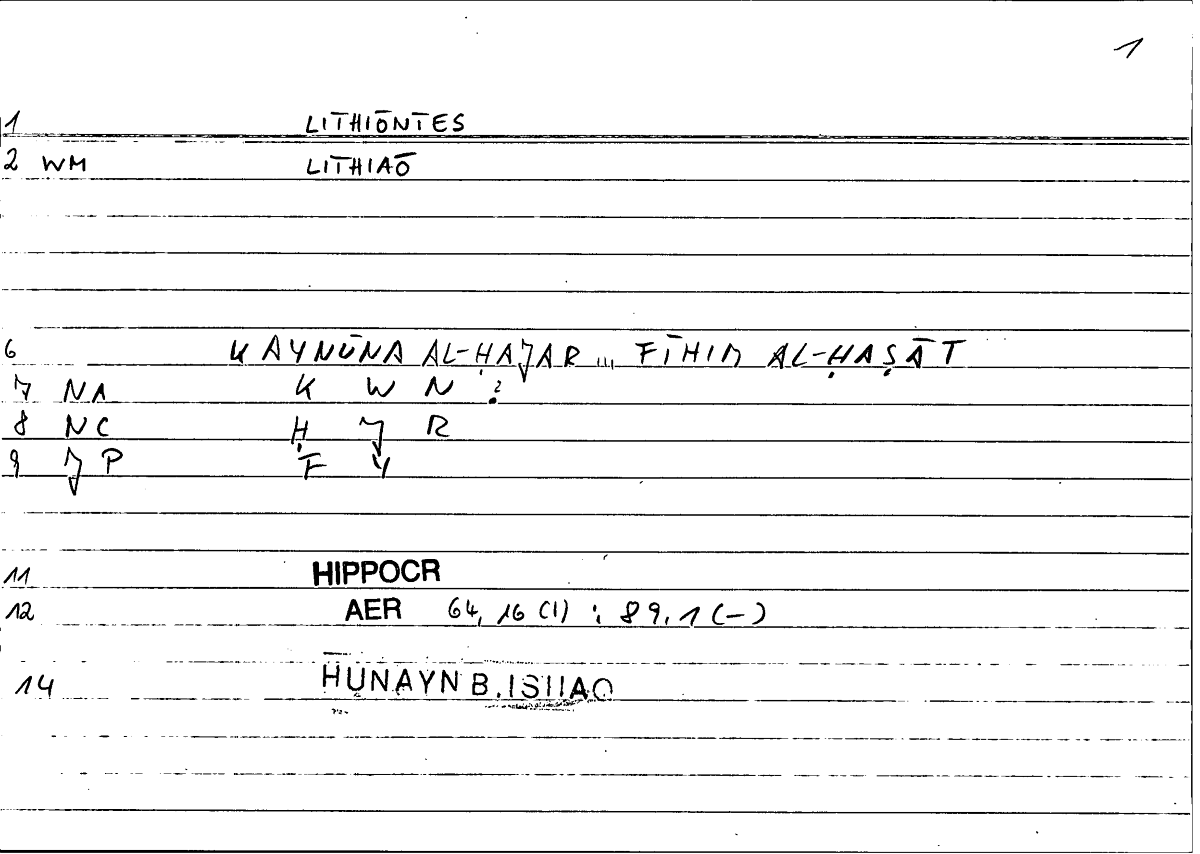 1
1 LITHIŌNTES
2 WM LITHIAŌ
6 KAYNŪNA AL-ḤAJAR ... FĪHIM AL-ḤAṢĀT
7 NA K W N ?
8 NC Ḥ J R
9 JP F Y
11 HIPPOCR
12 AER 64, 16 (1) : 89, 1 (-)
14 ḤUNAYN B. ISḤAQ